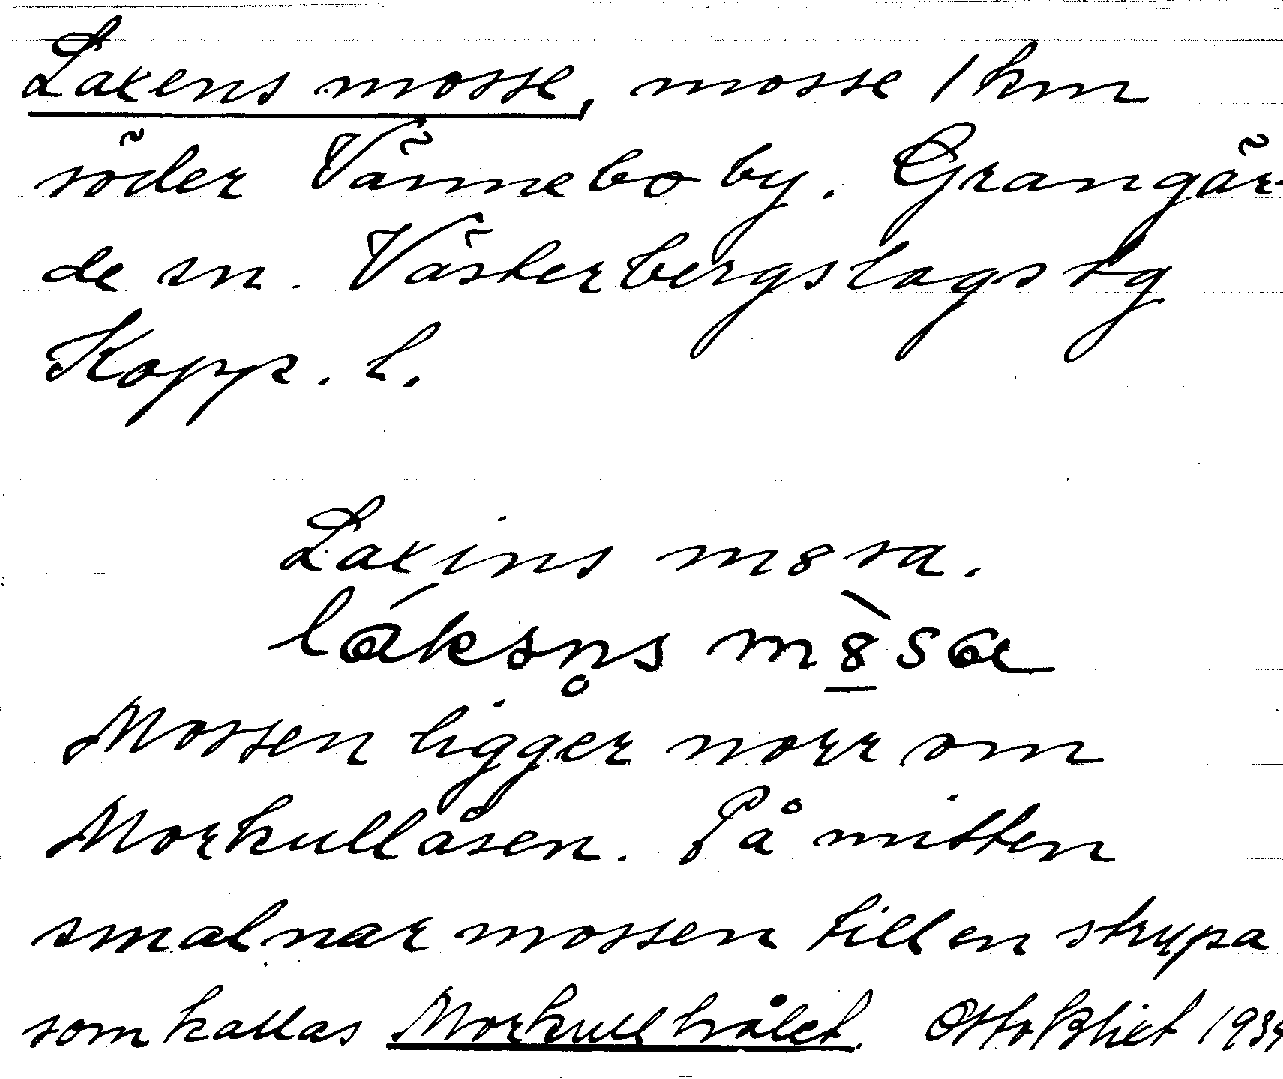 Laxens mosse, mosse 1 km
söder Vännebo by. Grangär-
de sn. Västerbergslags tg
Kopp. l.
Laxins m8sa.
láksn̥s m8̱̀sa
Mossen ligger norr om
Morkullåsen. På mitten
smalnar mossen till en strypa
som kallas Morkullhålet. Otto Blixt 1934